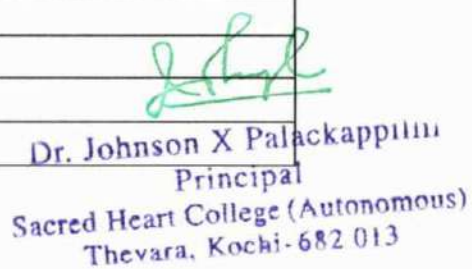 Dr. Johnson X Palackappilli
Principal
Sacred Heart College (Autonomous)
Thevara, Kochi-682 013